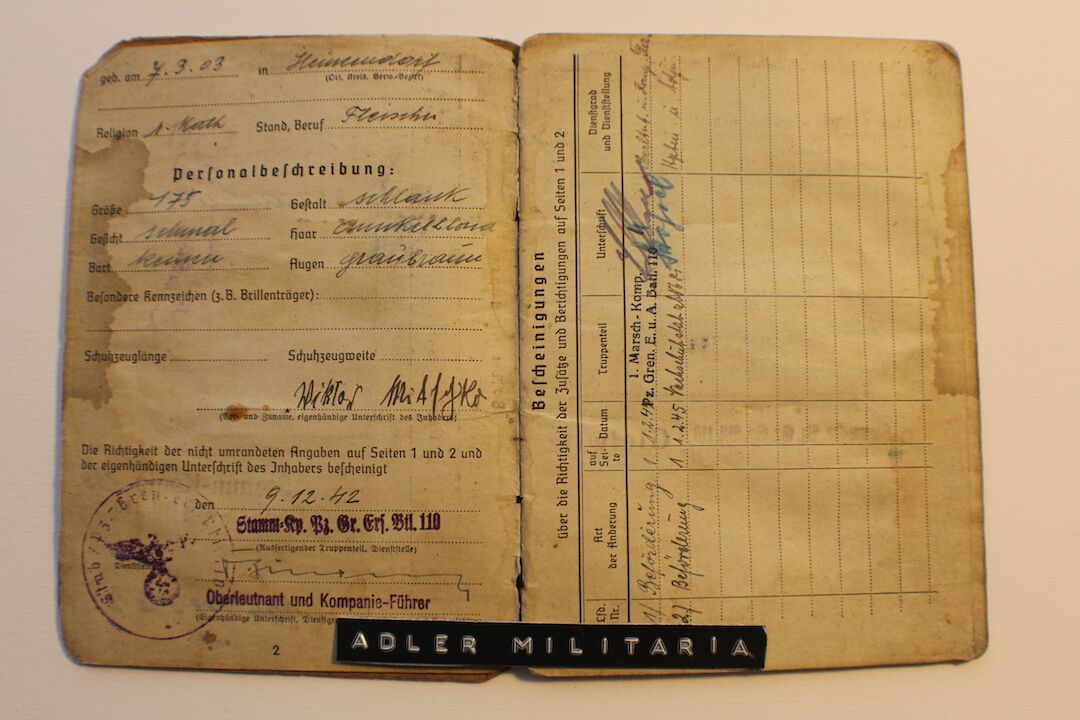 geb. am 7.3.03 in
(Ort, Kreis, Verw.-Bezirk)
Religion r. Kath Stand, Beruf Fleischer
Personalbeschreibung:
Größe 175 Gestalt schlank
Gesicht schmal Haar dunkelblond
Bart keinen Augen graubraun
Besondere Kennzeichen (z. B. Brillenträger):
Schuhzeuglänge Schuhzeugweite
Wiktor
(Vor- und Zuname, eigenhändige Unterschrift des Inhabers)
Die Richtigkeit der nicht umrandeten Angaben auf Seiten 1 und 2 und
der eigenhändigen Unterschrift des Inhabers bescheinigt
den 9.12.42
Stamm-Kp. Pz. Gr. Ers. Btl. 110
(Ausfertigender Truppenteil, Dienststelle)
Dienststelle
Oberleutnant und Kompanie-Führer
(Eigenhändige Unterschrift,
2
Bescheinigungen
über die Richtigkeit der Zusätze und Berichtigungen auf Seiten 1 und 2
Lfd. Nr.
Art der Änderung
auf Sei- te
Datum
Truppenteil
Unterschrift
Dienstgrad und Dienststellung
1) Beförderung 1
1. Marsch-Komp.
Pz. Gren. E. u. A. Batl. 110
2) Beförderung 1 1.2.45
ADLER MILITARIA